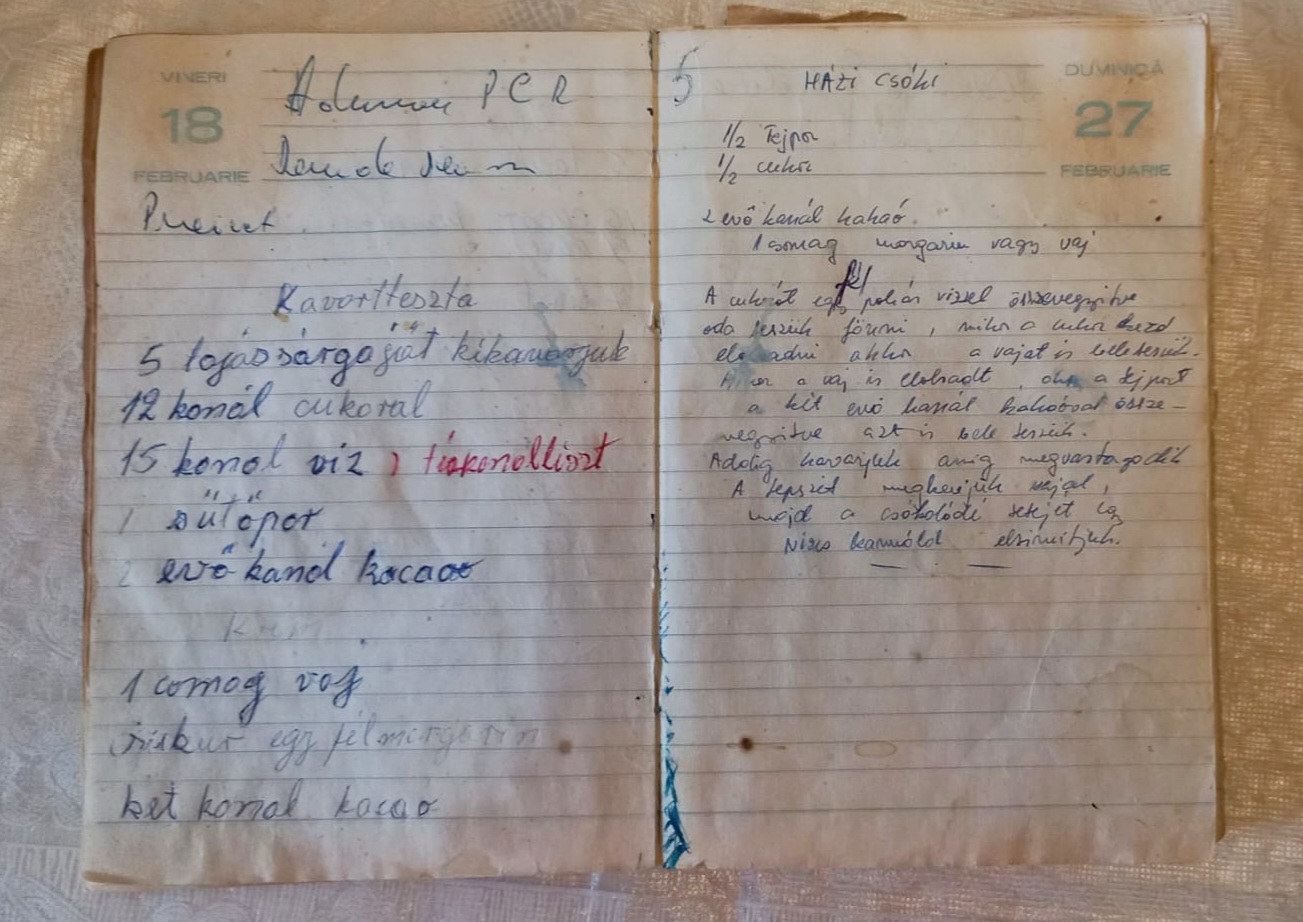 VINERI
18
FEBRUARIE
PCR
Kavartteszta
5 tojássárgáját kikavarjuk
12 kanál cukoral
15 kanal viz
1 sütőpor
2 evőkanál kacao
Krém
1 comag vaj
egy fél margarin
két kanal kacao
5 HÁZI CSÓKI
DUMINICĂ
27
FEBRUARIE
1/2 Tejpor
1/2 cukor
2 evő kanál kakaó.
1 csomag margarin vagy vaj
A cukrot egy fél pohár vizzel összevegyitve
oda teszük főzni, mikor a cukor kezd
olvadni akkor a vajat is beleteszük.
Mikor a vaj is elolvadt, a tejport
a két evő kanál kakaóval össze-
vegyitve azt is bele teszük.
Addig kavarjuk amig megvastagodik
A tepszit megkenjük vajal,
majd a csokoládé tetejét egy
vizes kannáld elsimitjuk.